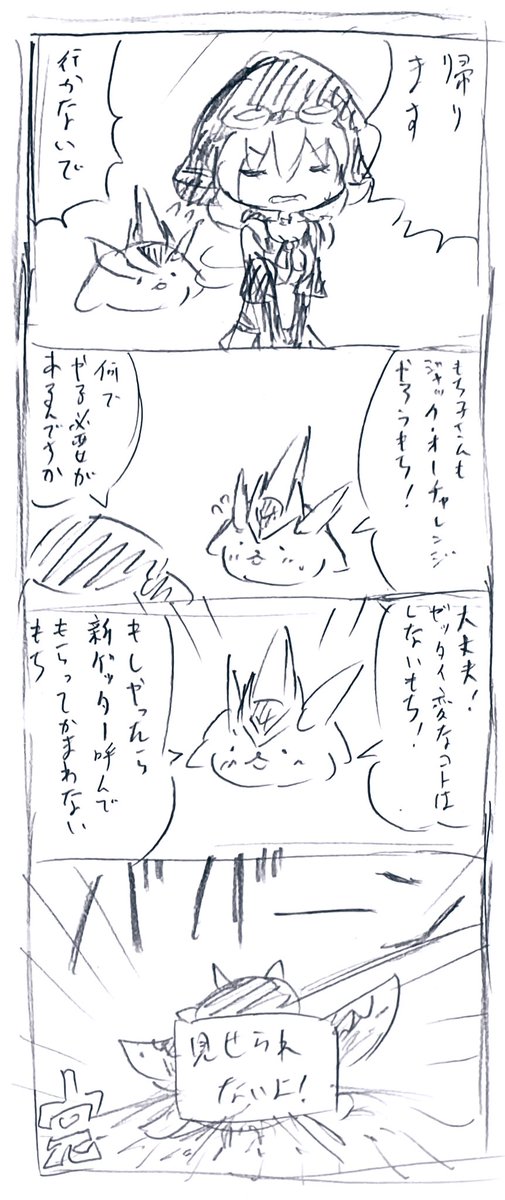 帰り
ます
行かないで
もち子さんも
ジャック・オーチャレンジ
やろうもち!
何で
やる必要が
あるんですか
大丈夫!
ゼッタイ変なコトは
しないもち!
もしやったら
新ゲッター呼んで
もらってかまわない
もち
バリーン
見せられ
ないよ!
完